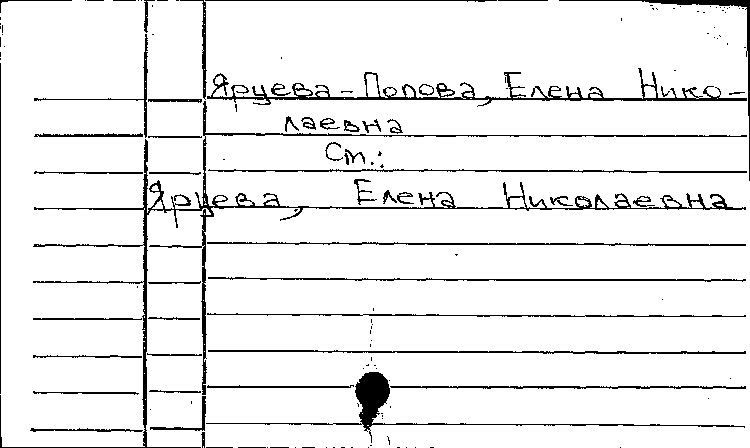 Ярцева-Попова, Елена Нико-
лаевна
См.:
Ярцева, Елена Николаевна